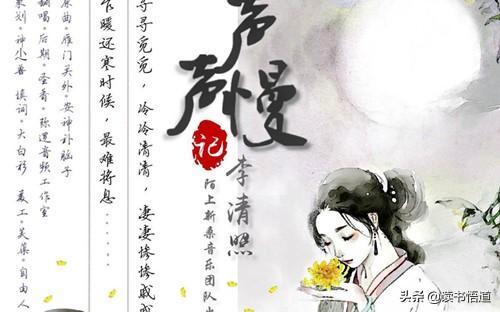 声声慢
记
李清照
陌上新桑音乐团队出
寻寻觅觅，冷冷清清，凄凄惨惨戚戚
乍暖还寒时候，最难将息......
原曲·雁门关外·安神补脑子
翻唱·后期·圣斋·弥遇音频工作室
策划·神小善 填词·大白衫 美工·芙蕖·自由人
头条 @读书悟道